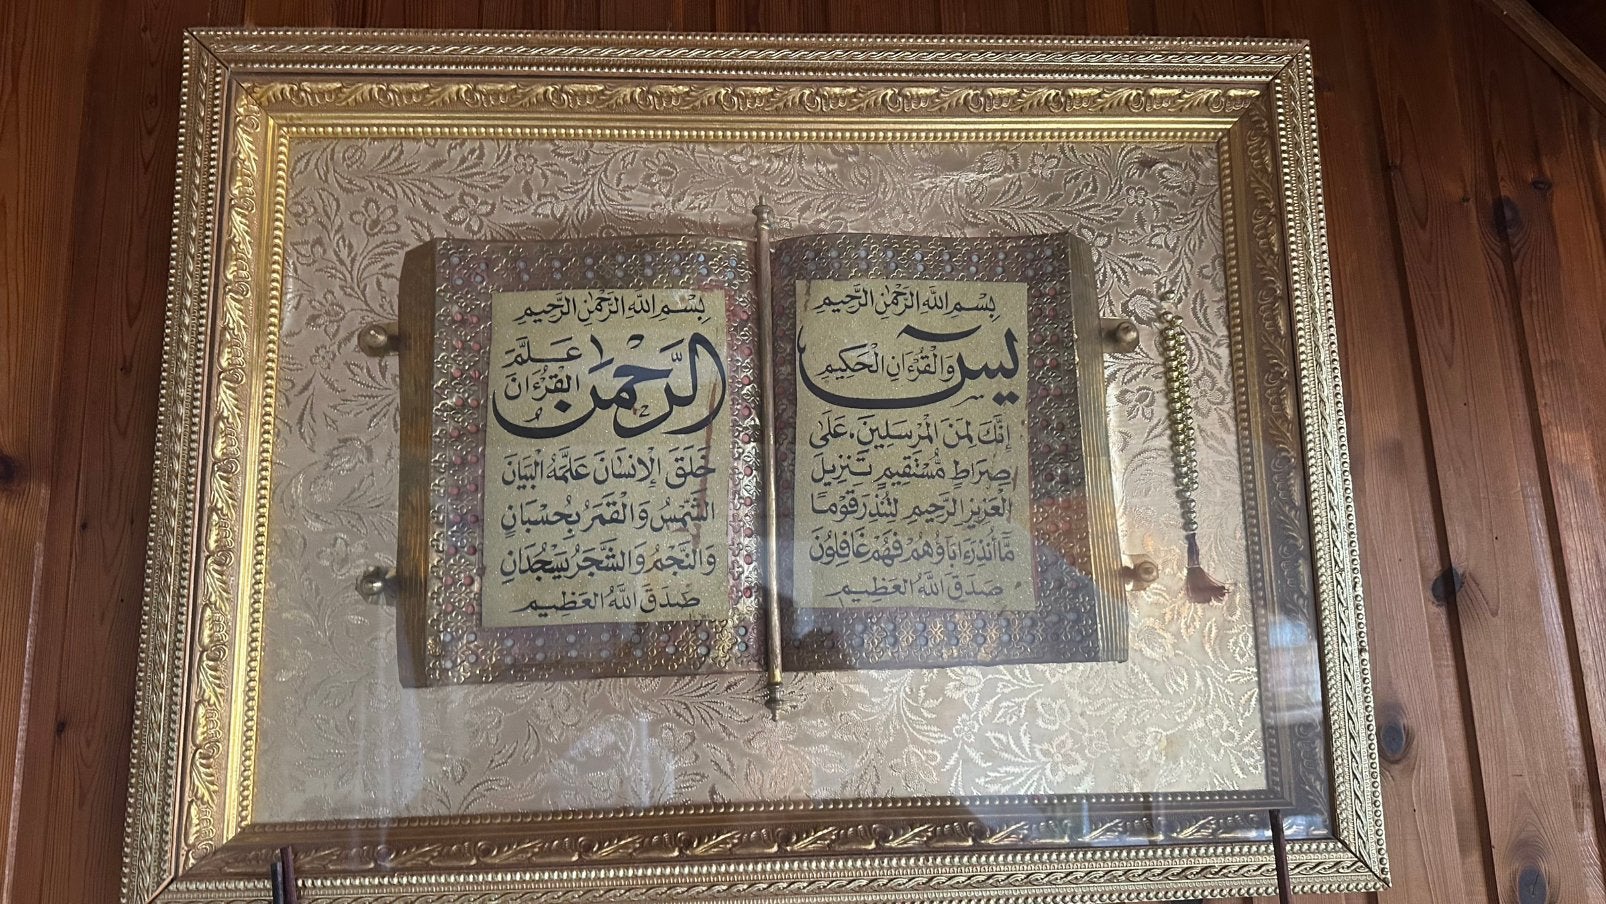 بِسْمِ اللَّهِ الرَّحْمٰنِ الرَّحِيمِ
يسٓ وَالْقُرْءَانِ الْحَكِيمِ
إِنَّكَ لَمِنَ الْمُرْسَلِينَ، عَلَىٰ
صِرَاطٍ مُّسْتَقِيمٍ تَنْزِيلَ
الْعَزِيزِ الرَّحِيمِ لِتُنْذِرَ قَوْمًا
مَّا أُنْذِرَ ءَابَاؤُهُمْ فَهُمْ غَافِلُونَ
صَدَقَ اللَّهُ الْعَظِيم
بِسْمِ اللَّهِ الرَّحْمٰنِ الرَّحِيمِ
الرَّحْمٰنُ عَلَّمَ
الْقُرْءَانَ
خَلَقَ الْإِنْسَانَ عَلَّمَهُ الْبَيَانَ
الشَّمْسُ وَالْقَمَرُ بِحُسْبَانٍ
وَالنَّجْمُ وَالشَّجَرُ يَسْجُدَانِ
صَدَقَ اللَّهُ الْعَظِيم